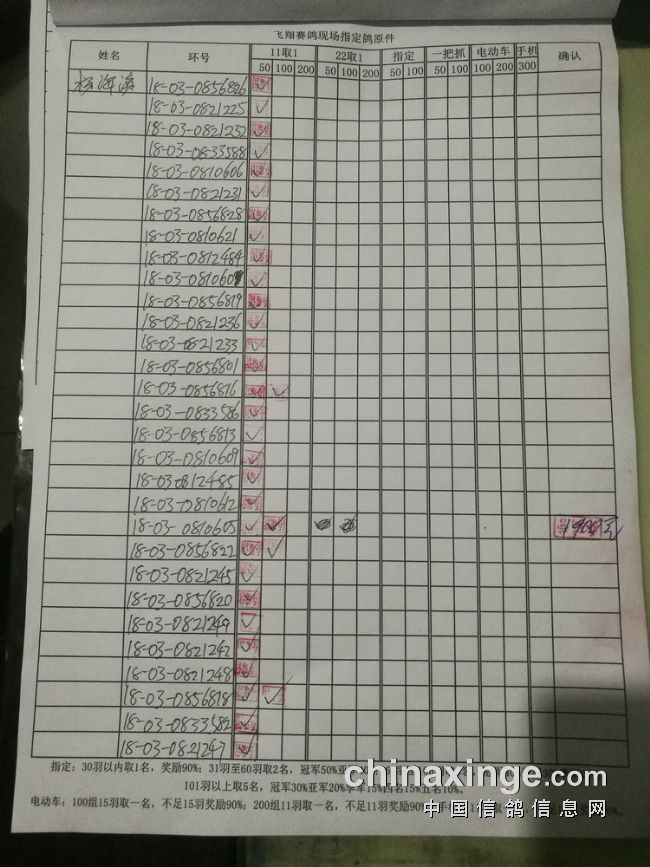 飞翔赛鸽现场指定鸽原件
姓名 环号 11取1 22取1 指定 一把抓 电动车 手机 确认
50 100 200 50 100 200 50 100 50 100 100 200 300
杨海滨 18-03-0856826 ✓
18-03-0821225 ✓
18-03-0821232 ✓
18-03-0833588 ✓
18-03-0810606 ✓
18-03-0821231 ✓
18-03-0856828 ✓
18-03-0810621 ✓
18-03-0812484 ✓
18-03-081060 ✓
18-03-0856819 ✓
18-03-0821236 ✓
18-03-0821233 ✓
18-03-0856801 ✓
18-03-0856816 ✓ ✓
18-03-0833586 ✓
18-03-0856813 ✓
18-03-0810609 ✓
18-03-0812485 ✓
18-03-0810612 ✓
18-03-0810605 ✓ ✓ 1900元
18-03-0856822 ✓ ✓
18-03-0821245 ✓
18-03-0856820 ✓
18-03-0821249 ✓
18-03-0821242 ✓
18-03-0821248 ✓
18-03-0856818 ✓ ✓
18-03-0833582 ✓
18-03-0821247 ✓
指定：30羽以内取1名，奖励90%；31羽至60羽取2名，冠军50%亚
101羽以上取5名，冠军30%亚军20%季军15%四名15%五名10%。
电动车：100组15羽取一名，不足15羽奖励90%；200组11羽取一名，不足11羽奖励90%
chinaxinge.com
中国信鸽信息网